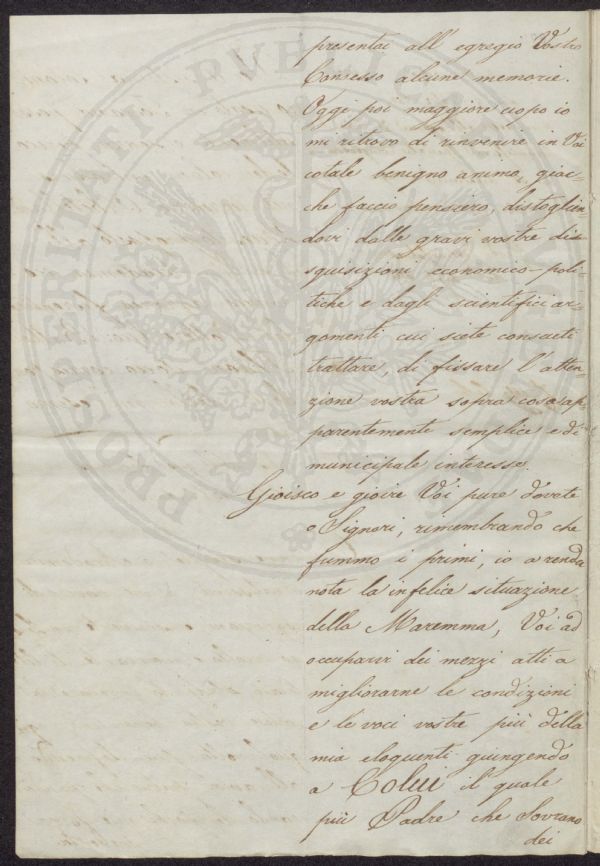 presentai all' egregio Vostro
Consesso alcune memorie.
Oggi poi maggiore uopo io
mi ritrovo di rinvenire in Voi
cotale benigno animo, giac-
che faccio pensiero, distoglien-
dovi dalle gravi vostre di-
squisizioni economico-poli-
tiche e dagli scientifici ar-
gomenti cui siete consueti
trattare, di fissare l'atten-
zione vostra sopra cosa ap-
parentemente semplice e di
municipale interesse.
Gioisco e gioire Voi pure dovete
o Signori, rimembrando che
fummo i primi, io a render
nota la infelice situazione
della Maremma, Voi ad
occuparvi dei mezzi atti a
migliorarne le condizioni
e le voci vostre più della
mia eloquenti giungendo
a Colui il quale
più Padre che Sovrano
dei
PROSPERITATI PVBLICAE